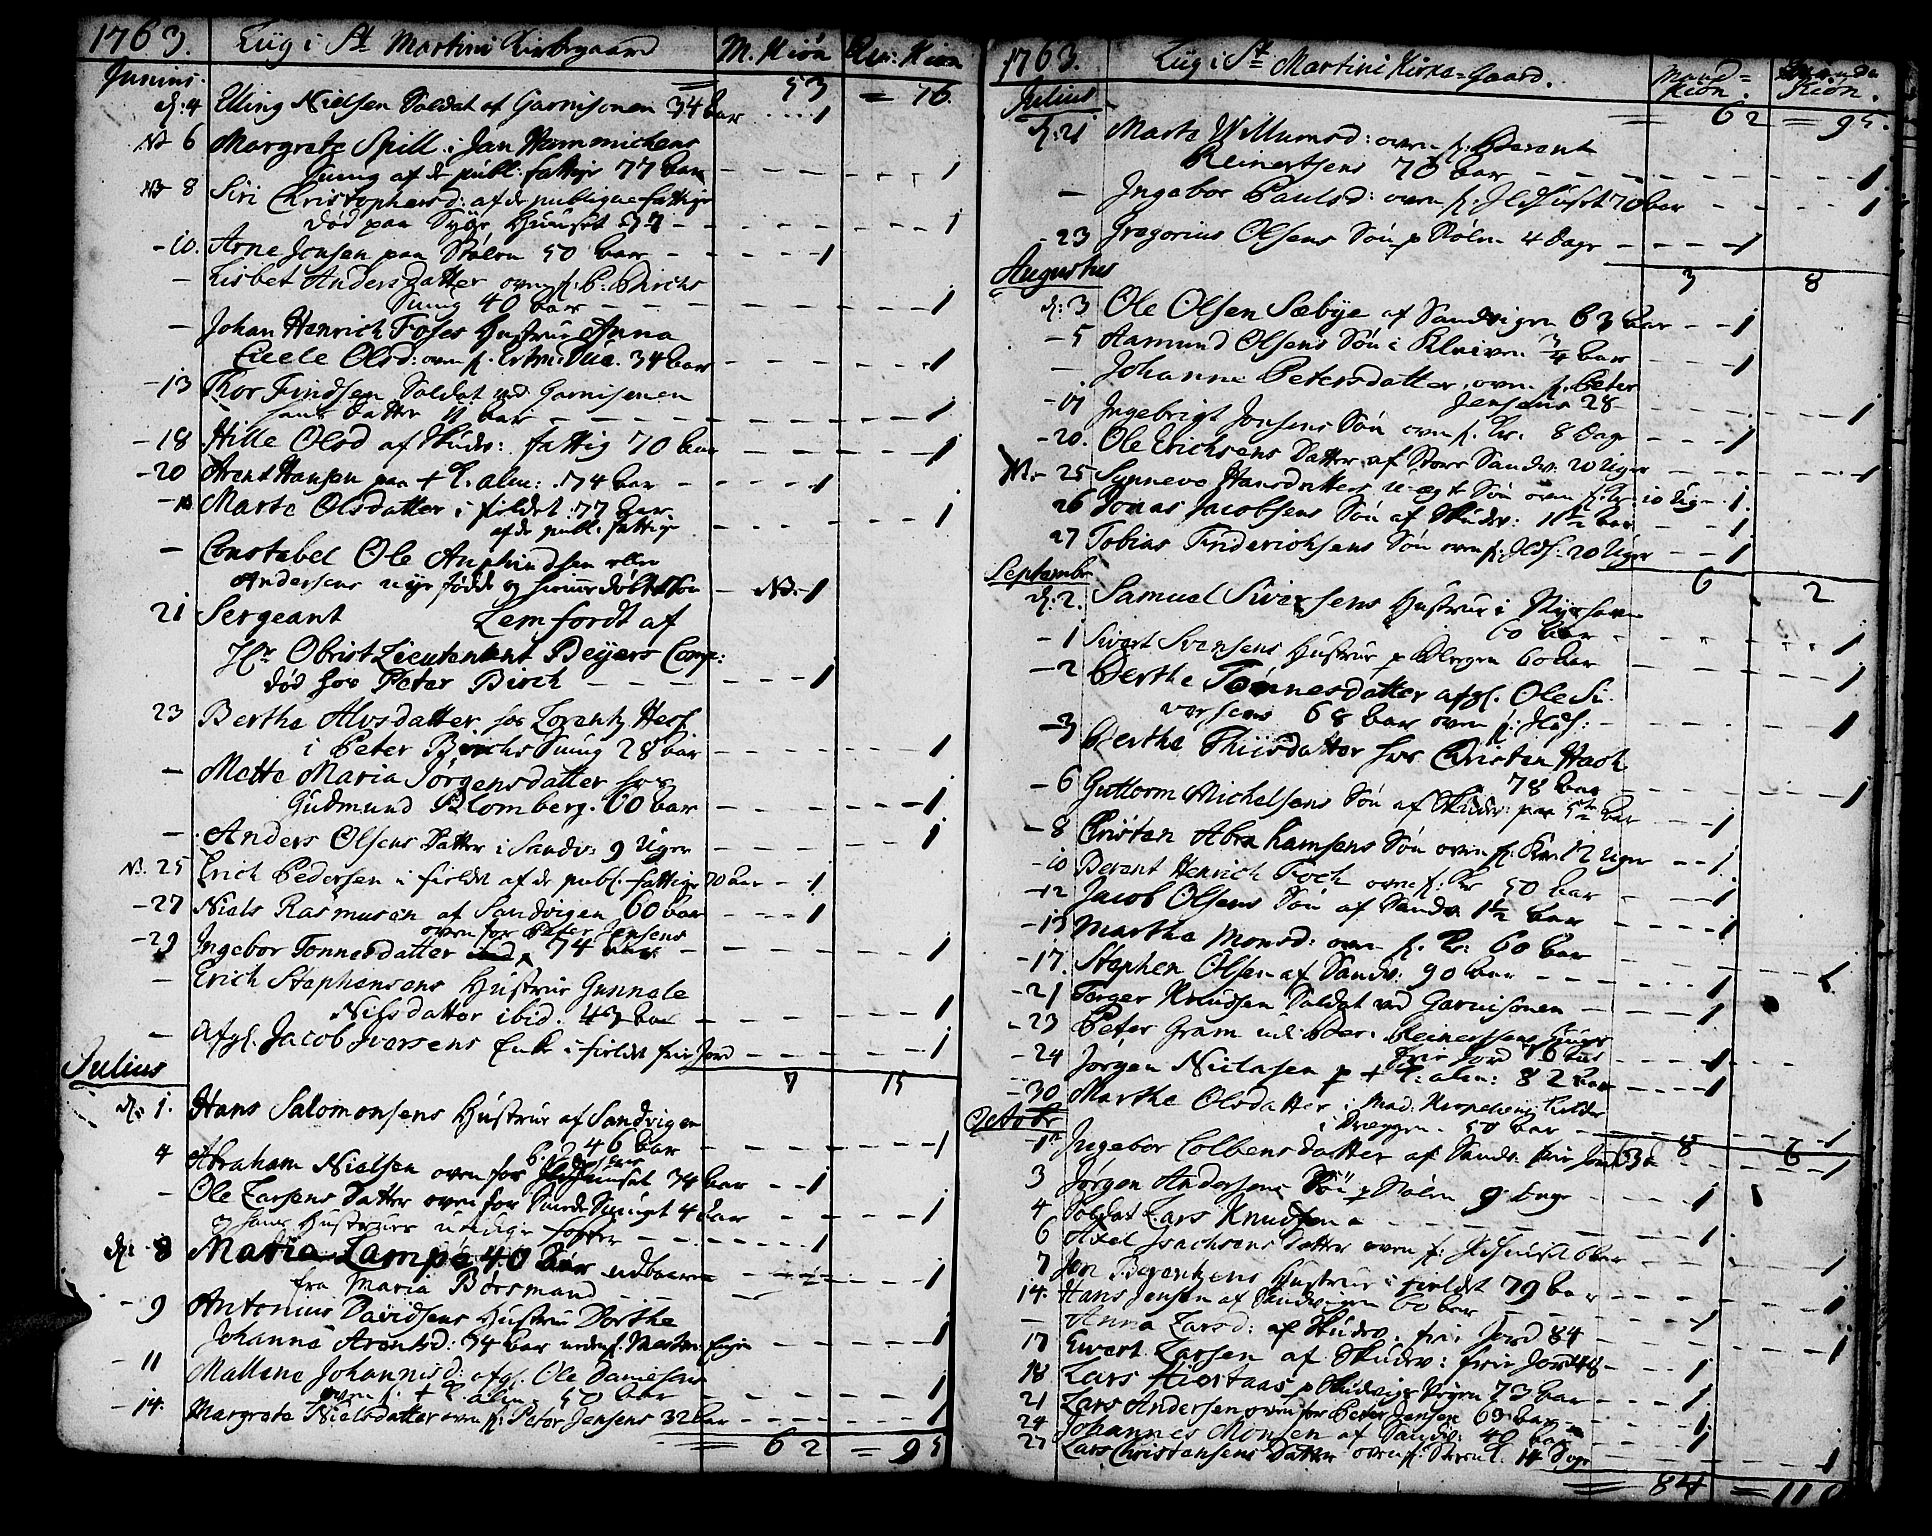 1763. Liig i St Martini Kirkegaard M. Kiön Qv: Kiön
Junius. 53 = 76.
d: 4 Elling Nielsen Soldat af Garnisonen 34 aar 1
NB 6 Margrete Spill i Jan Hommichens
Smug af de publ. fattige 77 aar 1
NB 8 Siri Christophersd: af de publique fattige
död paa Syge Huuset 1
- 10. Arne Jensen paa Stölen 50 aar 1
- Lisbet Andersdatter oven f. P. Birchs
Smug 40 aar 1
- Johan Henrich Foses Hustrue Anna
Cicele Olsd: oven f. 34 aar 1
- 13 Thor Findsen Soldat ved Garnisonen
hans datter 1
- 18 Hille Olsd af Skudv: fattig 70 aar 1
- 20 Arent Hansen paa + K. alm: 74 aar 1
- Marte Olsdatter i fieldet 77 aar
af de publ. fattige 1
- Constabel Ole Amphindsen eller
Andersens nye födde og hiemme döbt Sön NB 1
21 Sergeant Lemfordt af
Hr Obrist Lieutenant Beyers Comp:
död hos Peter Birch 1
23 Bertha Alvsdatter hos Lorentz
i Peter Birchs Smug 28 aar 1
- Mette Maria Jörgensdatter hos
Gudmund Blomberg. 60 aar 1
- Anders Olsens Datter i Sandv: 9 Uger 1
NB. 25 Erich Pedersen i fieldet af de publ. fattige 70 aar 1
- 27 Niels Rasmusen af Sandvigen 60 aar 1
oven for Peter Jensens
- 29 Ingebor Tonnesdatter 74 aar 1
- Erich Stephensens Hustrue Gunnele
Nilsdatter ibid. 43 aar 1
- Afgl. Jacob Iversens Enke i fieldet frie Jord 1
Julius 7 15
d: 1. Hans Salomonsens Hustrue af Sandvigen
46 aar 1
4 Abraham Nielsen oven for 74 aar 1
- Ole Larsens Datter oven for Smuget 4 aar 1
og hans Hustrues 1
d: 8 Maria Lampe 40 aar udbaaren
fra Maria Börsmand 1
- 9 Antonius Davidsens Hustrue Dorthe
Johanna Arentsd: 74 aar 1
- 11 Mallene Johannisd: afgl. Ole Danielsens
oven f. + K. alm. 50 aar 1
- 14. Margrete Nielsdatter oven f. Peter Jensens 32 aar 1
62 = 95
1763. Liig i St Martini Kirke-Gaard. Mand-Kiön. Qvinde Kiön.
Julius 62 = 95.
d: 21 Marte Willumsd: oven f. Berent
Reinertsens 70 aar 1
- Ingebor Paulsd: oven f. Ildhuset 70 aar 1
- 23 Gregorius Olsens Sön p Stölen 4 dage 1
Augustus 3 8
d: 3 Ole Olsen Sæbye af Sandvigen 63 aar 1
- 5 Aamund Olsens Sön i Kleiven 3/4 aar 1
- Johanne Petersdatter oven f. Peter
Jensens 28 1
- 17 Ingebrigt Jonsens Sön oven f. Kr. 8 dage 1
- 20. Ole Erichsens Datter af Store Sandv: 20 Uger 1
NB. 25 Synneve Hansdatters u-ægte Sön oven f. Kr: 10 Uger 1
26 Jonas Jacobsens Sön af Skudv: 1 1/2 aar 1
27 Tobias Friderichsens Sön oven f. Ildh. 20 Uger 1
Septembr 6 2
d: 2. Samuel Siversens Hustrue i Nyehavn
60 aar 1
- 1 Sivert Svensens Hustrue p Bergen 60 aar 1
- 2 Berthe Tönnesdatter afgl. Ole Si
versens 68 aar oven f. Ildh: 1
- 3 Berthe Thiisdatter hos Christen Hach
78 aar 1
- 6 Guttorm Michelsens Sön af Skudv: paa 5te aar 1
- 8 Christen Abrahamsens Sön oven f. Kr. 12 Uger 1
- 10 Berent Henrich Foch oven f: Kr 50 aar 1
- 12 Jacob Olsens Sön af Sandv 1 1/2 aar 1
- 15 Martha Monsd: oven f. Kr: 60 aar 1
- 17. Stephen Olsen af Sandv: 90 aar 1
- 21 Torger Knudsen Soldat ved Garnisonen 1
- 23 Peter Gram
frie Jord 76 aar 1
- 24 Jörgen Nielsen p + K: alm: 82 aar 1
- 30 Marthe Olsdatter i Mad.
i Dreggen 50 aar 1
Octobr 8 6
- 1 Ingebor Colbensdatter af Sandv frie Jord 63 1
3 Jörgen Andersens Sön p Stölen 9 Uge 1
4 Soldat Lars Knudsen 1
6 Axel Isachsens Datter oven f. Ildhuuset 6 aar 1
7 Jon Berentsens Hustrue i fieldet 79 aar 1
14. Hans Jensen af Sandvigen 60 aar 1
- Anna Larsd: af Skudv. frie Jord 84 1
17 Ewert Larsen af Skudv: frie Jord 48 1
18 Lars Hiortaas p Skudvigs Veyen 73 aar 1
21 Lars Andersen oven for Peter Jensen 63 aar 1
24 Johannes Monsen af Sandv: 40 aar 1
27 Lars Christensens Datter oven f. 14 Dage 1
84 = 110